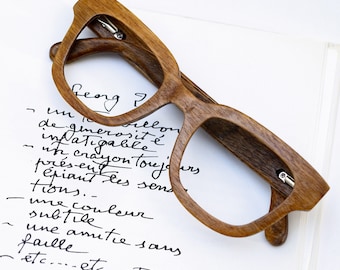 Georg
- un
de generosité
infatigable
- un crayon toujours
présent
épiant les sensa
tions..
- une couleur
subtile
- une amitie sans
faille
- etc....et